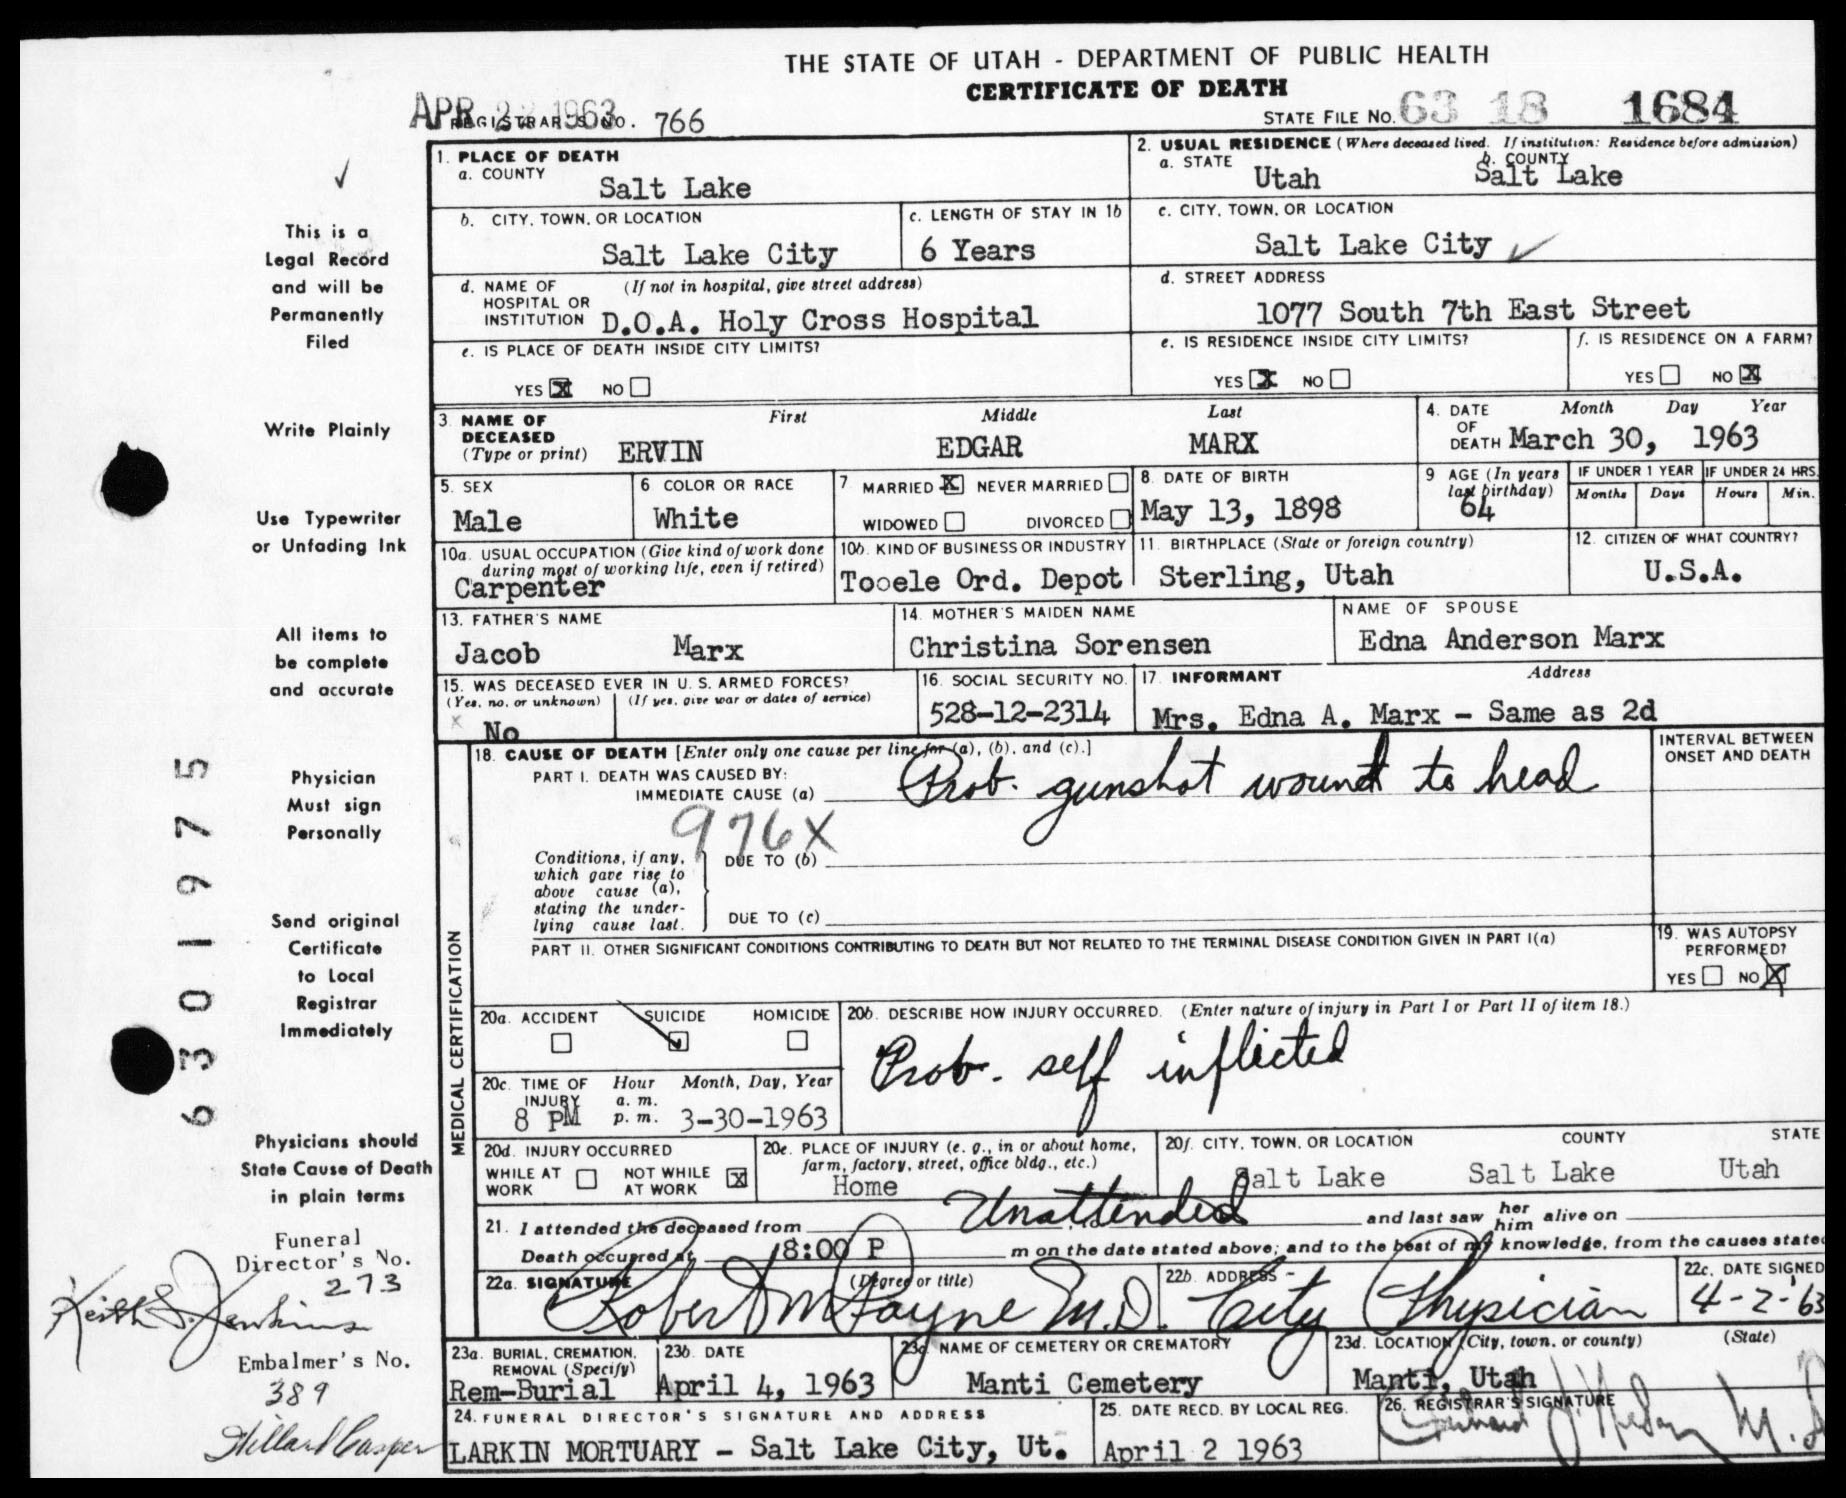 THE STATE OF UTAH - DEPARTMENT OF PUBLIC HEALTH
CERTIFICATE OF DEATH
APR 22 1963
REGISTRAR'S NO. 766
STATE FILE NO. 63 18 1684
This is a
Legal Record
and will be
Permanently
Filed
Write Plainly
Use Typewriter
or Unfading Ink
All items to
be complete
and accurate
Physician
Must sign
Personally
Send original
Certificate
to Local
Registrar
Immediately
Physicians should
State Cause of Death
in plain terms
Funeral
Director's No.
273
Keith S. Jenkins
Embalmer's No.
389
Hillard Casper
6301975
1. PLACE OF DEATH
a. COUNTY
Salt Lake
2. USUAL RESIDENCE (Where deceased lived. If institution: Residence before admission)
a. STATE Utah b. COUNTY Salt Lake
b. CITY, TOWN, OR LOCATION
Salt Lake City
c. LENGTH OF STAY IN 1b
6 Years
c. CITY, TOWN, OR LOCATION
Salt Lake City
d. NAME OF (If not in hospital, give street address)
HOSPITAL OR
INSTITUTION D.O.A. Holy Cross Hospital
d. STREET ADDRESS
1077 South 7th East Street
e. IS PLACE OF DEATH INSIDE CITY LIMITS?
YES X NO
e. IS RESIDENCE INSIDE CITY LIMITS?
YES X NO
f. IS RESIDENCE ON A FARM?
YES NO X
3. NAME OF DECEASED (Type or print)
First Middle Last
ERVIN EDGAR MARX
4. DATE OF DEATH Month Day Year
March 30, 1963
5. SEX
Male
6 COLOR OR RACE
White
7. MARRIED X NEVER MARRIED
WIDOWED DIVORCED
8. DATE OF BIRTH
May 13, 1898
9 AGE (In years last birthday)
64
IF UNDER 1 YEAR
Months Days
IF UNDER 24 HRS.
Hours Min.
10a. USUAL OCCUPATION (Give kind of work done
during most of working life, even if retired)
Carpenter
10b. KIND OF BUSINESS OR INDUSTRY
Tooele Ord. Depot
11. BIRTHPLACE (State or foreign country)
Sterling, Utah
12. CITIZEN OF WHAT COUNTRY?
U.S.A.
13. FATHER'S NAME
Jacob Marx
14. MOTHER'S MAIDEN NAME
Christina Sorensen
NAME OF SPOUSE
Edna Anderson Marx
15. WAS DECEASED EVER IN U. S. ARMED FORCES?
(Yes, no, or unknown) (If yes, give war or dates of service)
No
16. SOCIAL SECURITY NO.
528-12-2314
17. INFORMANT Address
Mrs. Edna A. Marx - Same as 2d
MEDICAL CERTIFICATION
18. CAUSE OF DEATH [Enter only one cause per line for (a), (b), and (c).]
PART I. DEATH WAS CAUSED BY:
IMMEDIATE CAUSE (a) Prob. gunshot wound to head
INTERVAL BETWEEN
ONSET AND DEATH
976X
Conditions, if any,
which gave rise to
above cause (a),
stating the under-
lying cause last.
DUE TO (b)
DUE TO (c)
PART II. OTHER SIGNIFICANT CONDITIONS CONTRIBUTING TO DEATH BUT NOT RELATED TO THE TERMINAL DISEASE CONDITION GIVEN IN PART I(a)
19. WAS AUTOPSY
PERFORMED?
YES NO X
20a. ACCIDENT SUICIDE HOMICIDE
20b. DESCRIBE HOW INJURY OCCURRED. (Enter nature of injury in Part I or Part II of item 18.)
Prob. self inflicted
20c. TIME OF INJURY Hour Month, Day, Year
a. m.
p. m.
8 PM 3-30-1963
20d. INJURY OCCURRED
WHILE AT WORK NOT WHILE AT WORK X
20e. PLACE OF INJURY (e. g., in or about home,
farm, factory, street, office bldg., etc.)
Home
20f. CITY, TOWN, OR LOCATION COUNTY STATE
Salt Lake Salt Lake Utah
21. I attended the deceased from Unattended and last saw her him alive on
Death occurred at 8:00 P m on the date stated above; and to the best of my knowledge, from the causes stated
22a. SIGNATURE (Degree or title)
Robert M Payne M.D.
22b. ADDRESS -
City Physician
22c. DATE SIGNED
4-2-63
23a. BURIAL, CREMATION,
REMOVAL (Specify)
Rem-Burial
23b. DATE
April 4, 1963
23c. NAME OF CEMETERY OR CREMATORY
Manti Cemetery
23d. LOCATION (City, town, or county) (State)
Manti, Utah
24. FUNERAL DIRECTOR'S SIGNATURE AND ADDRESS
LARKIN MORTUARY - Salt Lake City, Ut.
25. DATE RECD. BY LOCAL REG.
April 2 1963
26. REGISTRAR'S SIGNATURE